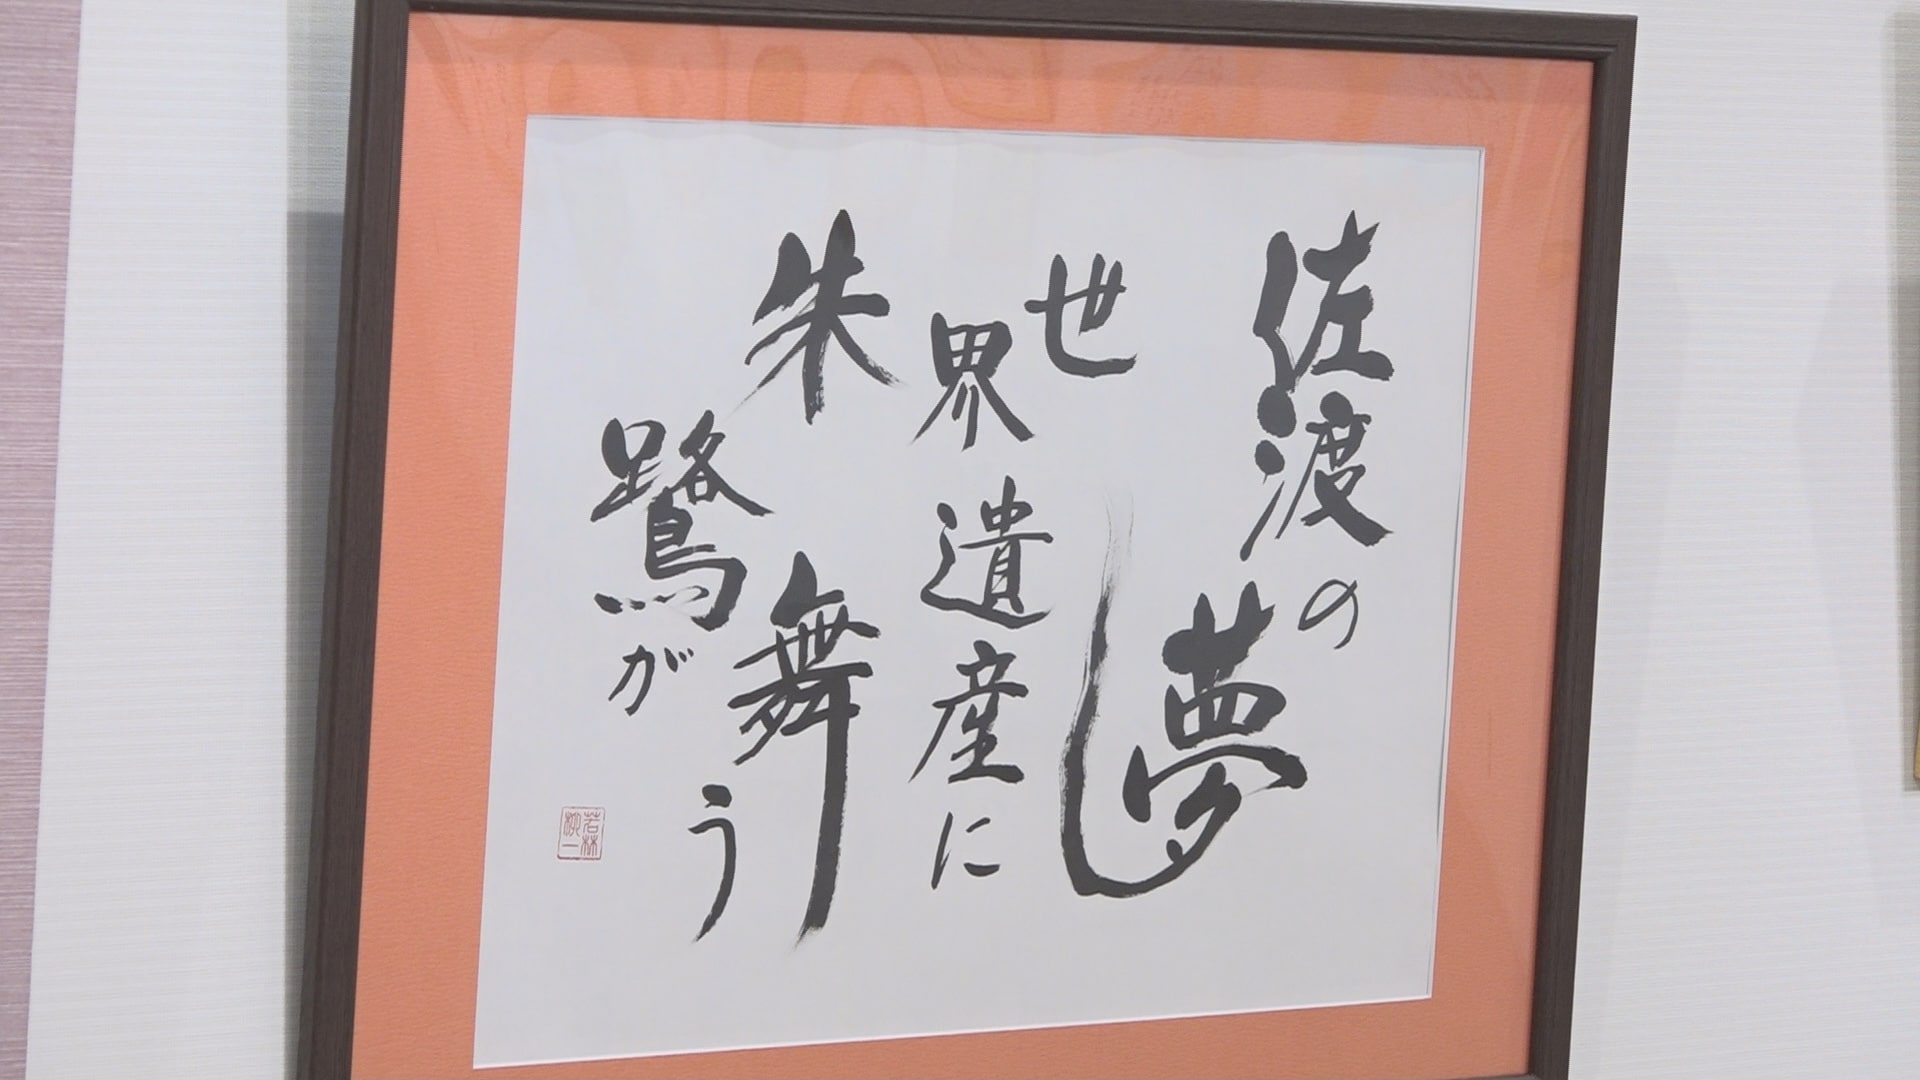 佐渡の
夢
世界遺産に
朱鷺が
舞う
若林